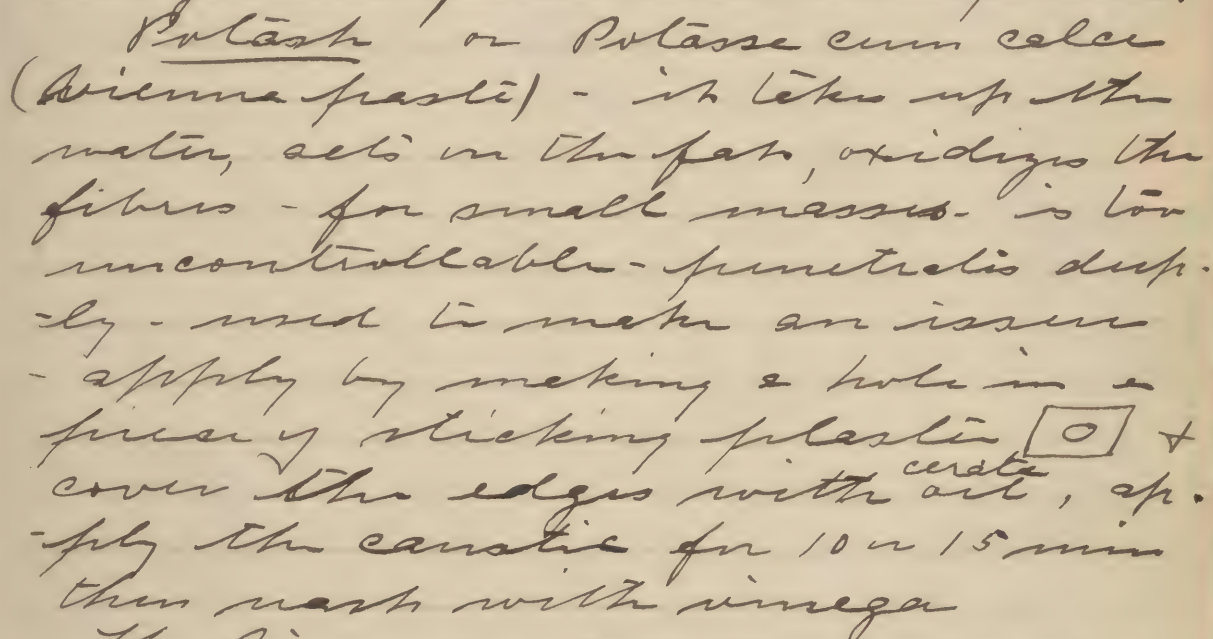 Potash or Potasse cum calce
(Vienna paste) - it takes up the
water, acts on the fat, oxidizes the
fibres - for small masses - is too
uncontrollable - penetrates deep-
-ly - used to make an issue
- apply by making a hole in a
piece of sticking plaster +
cover the edges with cerate oil, ap-
-ply the caustic for 10 or 15 min
then wash with vinega